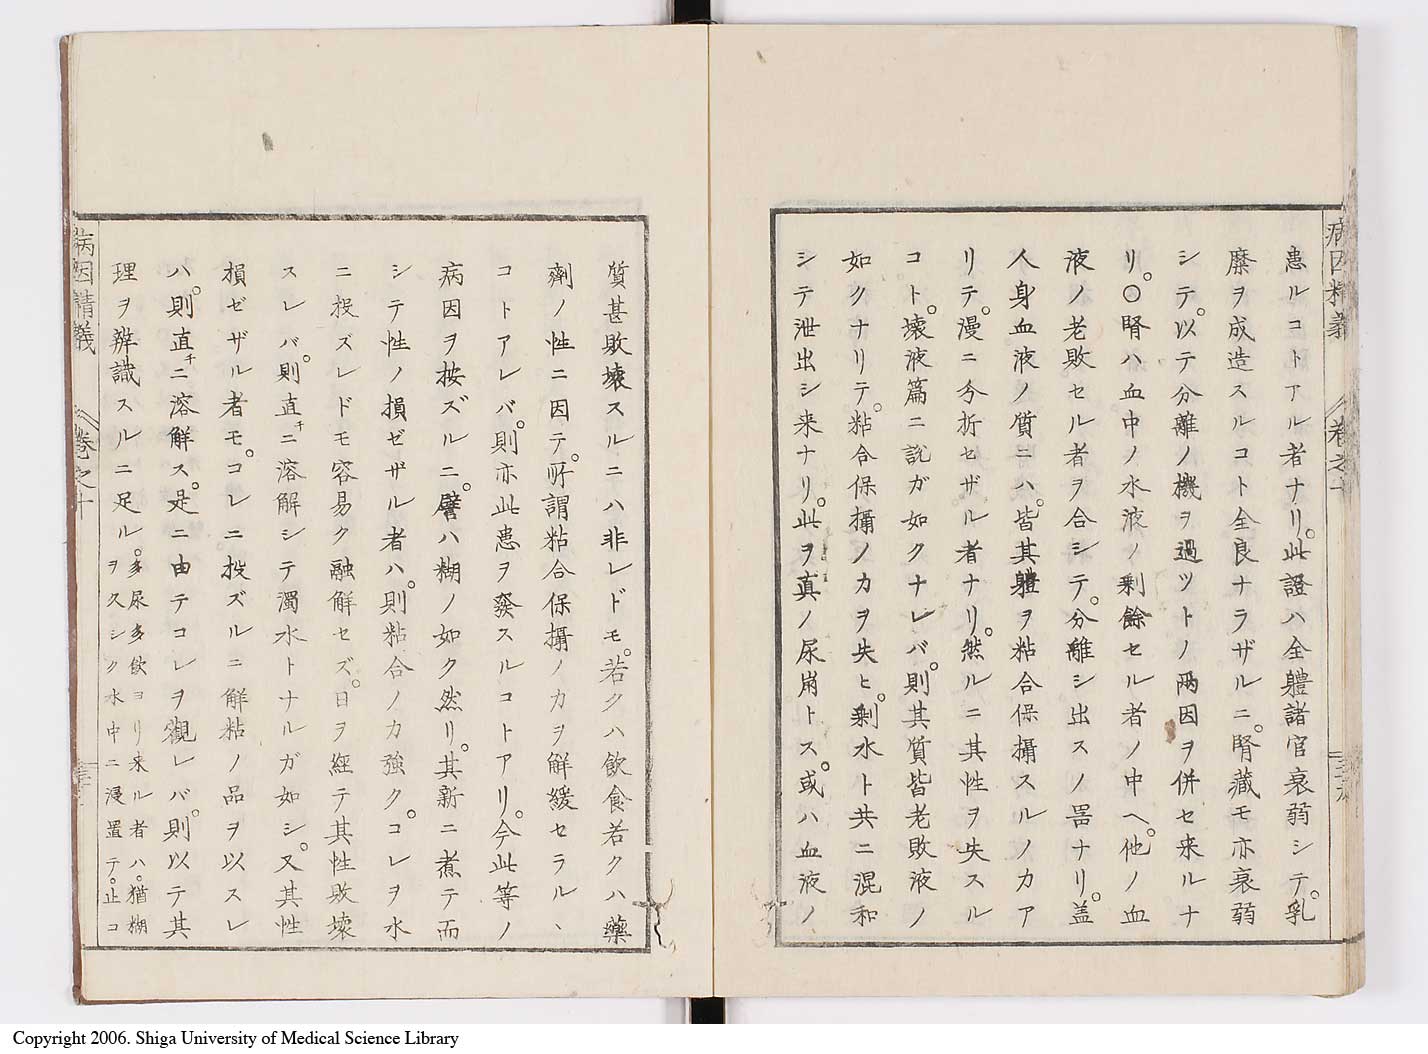 病因精義 巻之十
患ルコトアル者ナリ。此證ハ全軆諸官衰弱シテ。乳
糜ヲ成造スルコト全良ナラザルニ。腎藏モ亦衰弱
シテ。以テ分離ノ機ヲ過ツトノ兩因ヲ併セ来ルナ
リ。〇腎ハ血中ノ水液ノ剰餘セル者ノ中ヘ。他ノ血
液ノ老敗セル者ヲ合シテ。分離シ出スノ噐ナリ。盖
人身血液ノ質ニハ。皆其軆ヲ粘合保攝スルノカア
リテ。漫ニ分折セザル者ナリ。然ルニ其性ヲ失スル
コト。壊液篇ニ説ガ如クナレバ。則其質皆老敗液ノ
如クナリテ。粘合保攝ノカヲ失ヒ。剰水ト共ニ混和
シテ泄出シ来ナリ。此ヲ真ノ尿崩トス。或ハ血液ノ
質甚敗壊スルニハ非レドモ。若クハ飲食若クハ藥
劑ノ性ニ因テ。所謂粘合保攝ノカヲ解緩セラルヽ
コトアレバ。則亦此患ヲ發スルコトアリ。今此等ノ
病因ヲ按ズルニ。譬ハ糊ノ如ク然リ。其新ニ煮テ而
シテ性ノ損ゼザル者ハ。則粘合ノカ強ク。コレヲ水
ニ投ズレドモ容易ク融解セズ。日ヲ経テ其性敗壊
スレバ。則直チニ溶解シテ濁水トナルガ如シ。又其性
損ゼザル者モ。コレニ投ズルニ解粘ノ品ヲ以スレ
ハ。則直チニ溶解ス。是ニ由テコレヲ觀レバ。則以テ其
理ヲ辨識スルニ足ル。多尿多飲ヨリ来ル者ハ。猶糊
ヲ久シク水中ニ浸置テ。止コ
病因精義 巻之十
Copyright 2006. Shiga University of Medical Science Library